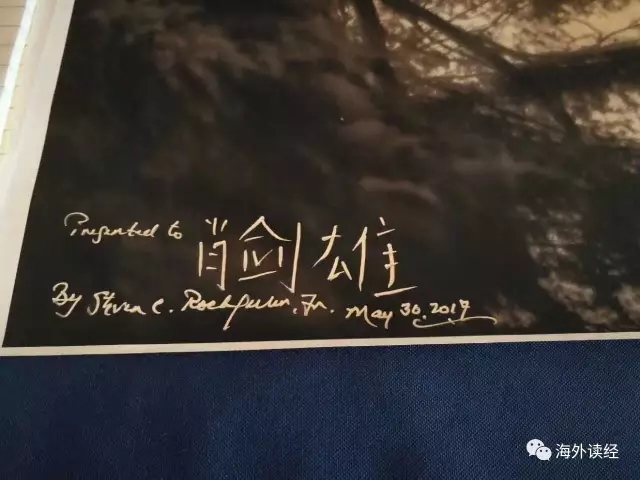 Presented to 肖剑雄
By Steven C. Rockefeller, Jr. May 30, 2017
海外读经